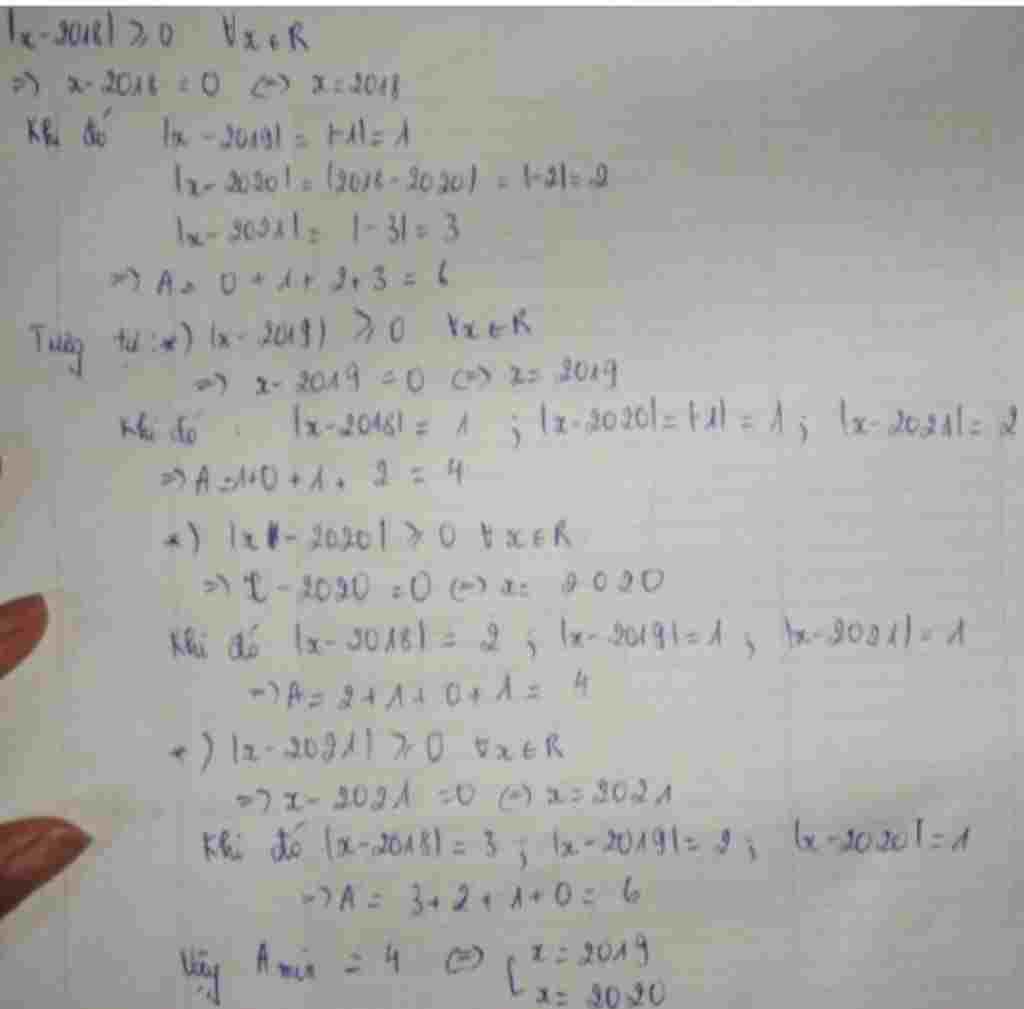 |x-2018| ≥ 0 ∀x ∈ R
=> x-2018 = 0 <=> x = 2018
Khi đó |x-2019| = |-1| = 1
|x-2020| = |2018-2020| = |-2| = 2
|x-2021| = |-3| = 3
=> A = 0 + 1 + 2 + 3 = 6
Tương tự : *) |x-2019| ≥ 0 ∀x ∈ R
=> x-2019 = 0 <=> x = 2019
Khi đó : |x-2018| = 1 ; |x-2020| = |-1| = 1 ; |x-2021| = 2
=> A = 1+0 + 1 + 2 = 4
*) |x-2020| ≥ 0 ∀x ∈ R
=> x-2020 = 0 <=> x = 2020
Khi đó |x-2018| = 2 ; |x-2019| = 1 ; |x-2021| = 1
=> A = 2 + 1 + 0 + 1 = 4
*) |x-2021| ≥ 0 ∀x ∈ R
=> x-2021 = 0 <=> x = 2021
Khi đó |x-2018| = 3 ; |x-2019| = 2 ; |x-2020| = 1
=> A = 3 + 2 + 1 + 0 = 6
Vậy A min = 4 <=> [ x = 2019
x = 2020